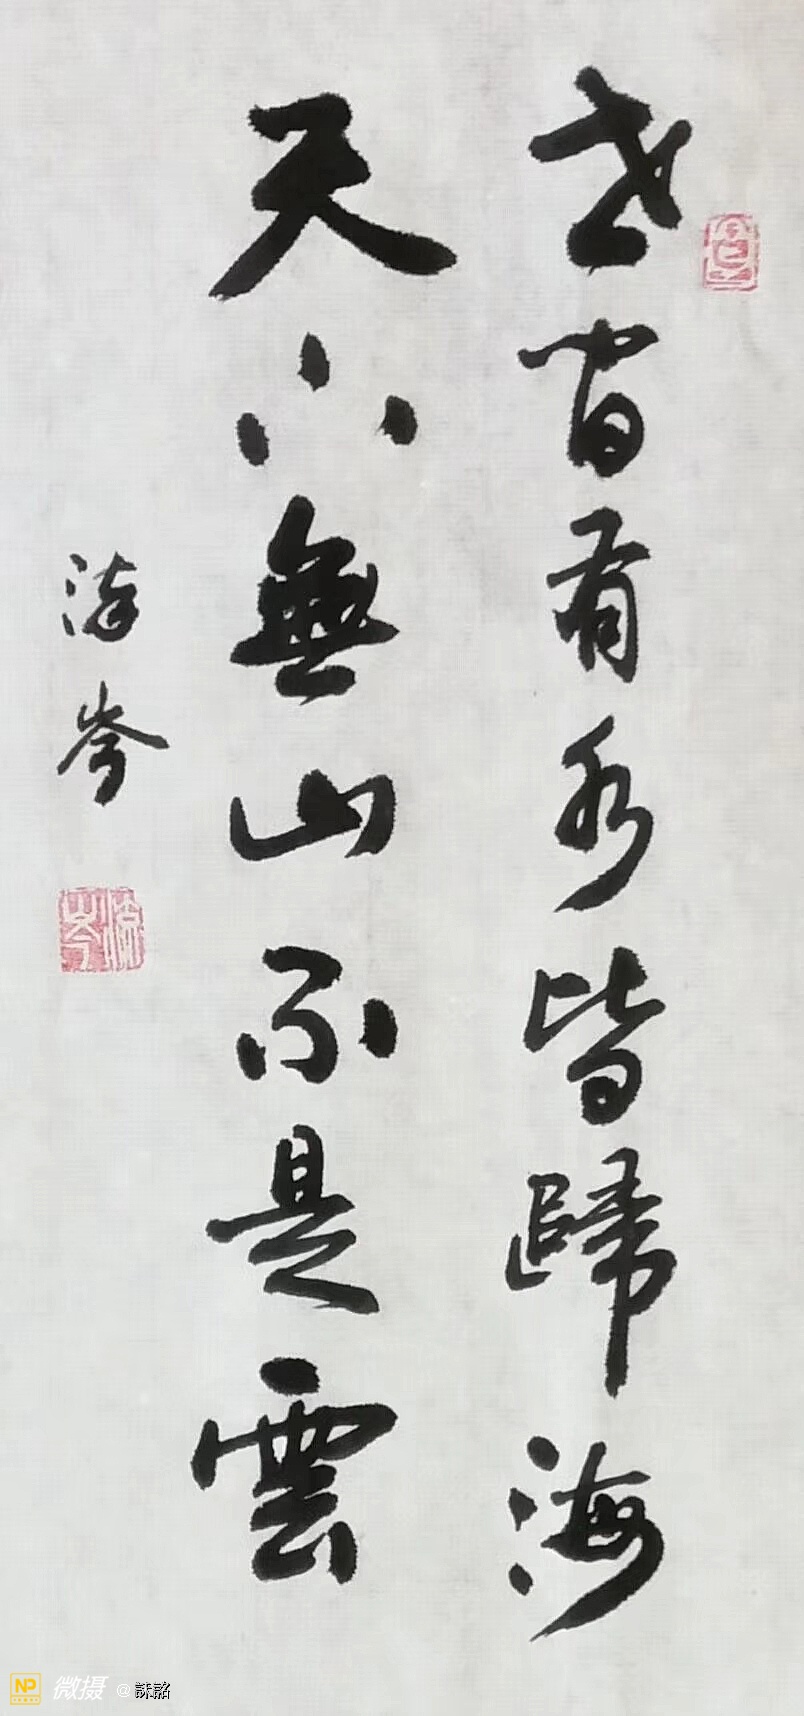 世間有水皆歸海
天下無山不是雲
岑
NP 微摄 @